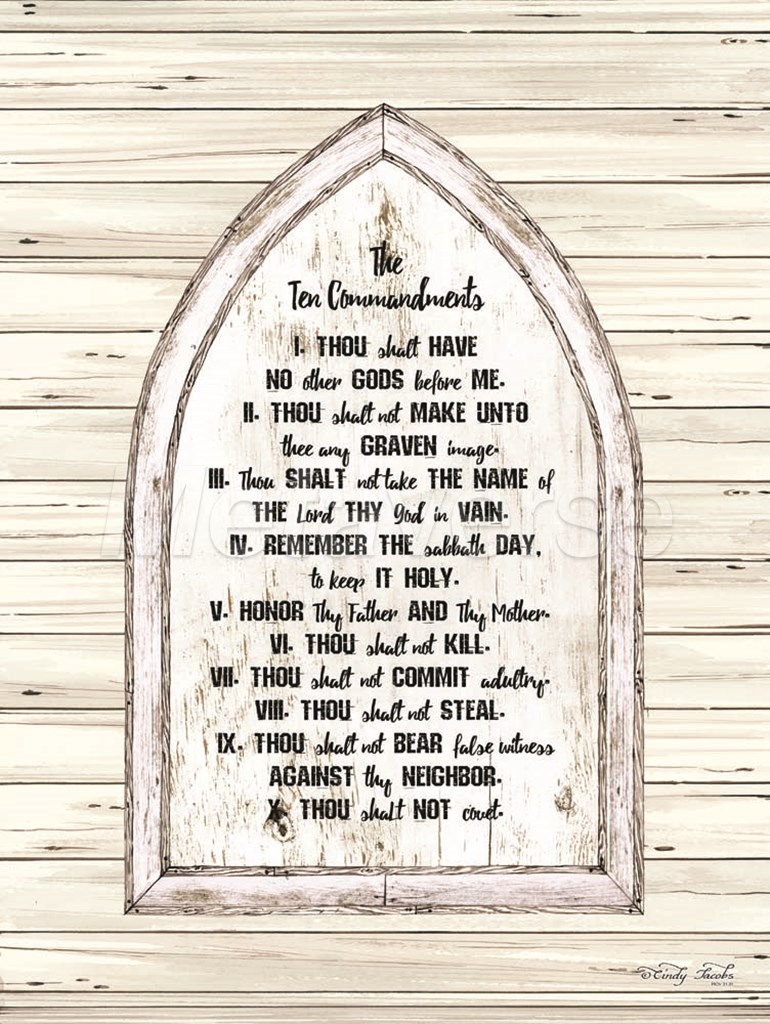 The
Ten Commandments
I. THOU shalt HAVE
NO other GODS before ME.
II. THOU shalt not MAKE UNTO
thee any GRAVEN image.
III. Thou SHALT not take THE NAME of
THE Lord THY god in VAIN.
IV. REMEMBER THE sabbath DAY,
to keep IT HOLY.
V. HONOR Thy Father AND Thy Mother.
VI. THOU shalt not KILL.
VII. THOU shalt not COMMIT adultry.
VIII. THOU shalt not STEAL.
IX. THOU shalt not BEAR false witness
AGAINST thy NEIGHBOR.
X. THOU shalt NOT covet.
MetaVerse
©Cindy Jacobs